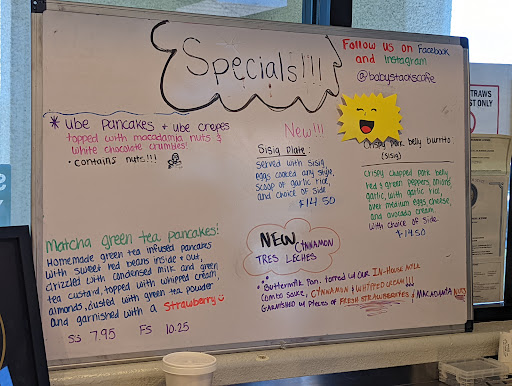 Specials!!!
Follow us on Facebook
and Instagram
@babystackscafe
STRAWS
EST ONLY
* Ube Pancakes + Ube Crepes
topped with macadamia nuts &
white chocolate crumbles!
• contains nuts!!!
New!!!
Sisig Plate:
served with sisig
eggs cooked any style,
scoop of garlic rice,
and choice of side
$14.50
Crispy Pork belly burrito
(sisig)
Crispy chopped pork belly,
red & green peppers, onions,
garlic, with garlic rice,
over medium eggs, cheese,
and avocado cream,
with choice of side
$14.50
Matcha green tea pancakes!
Homemade green tea infused pancakes
with sweet red beans inside + out,
drizzled with condensed milk and green
tea custard, topped with whipped cream,
almonds, dusted with green tea powder
and garnished with a strawberry
SS 7.95 FS 10.25
NEW CINNAMON
TRES LECHES
• Buttermilk Pan. topped w/ our IN-HOUSE MILK
Combo Sauce, CINNAMON & WHIPPED CREAM!!!
GARNISHED w/ Pieces of FRESH STRAWBERRIES & MACADAMIA NUTS